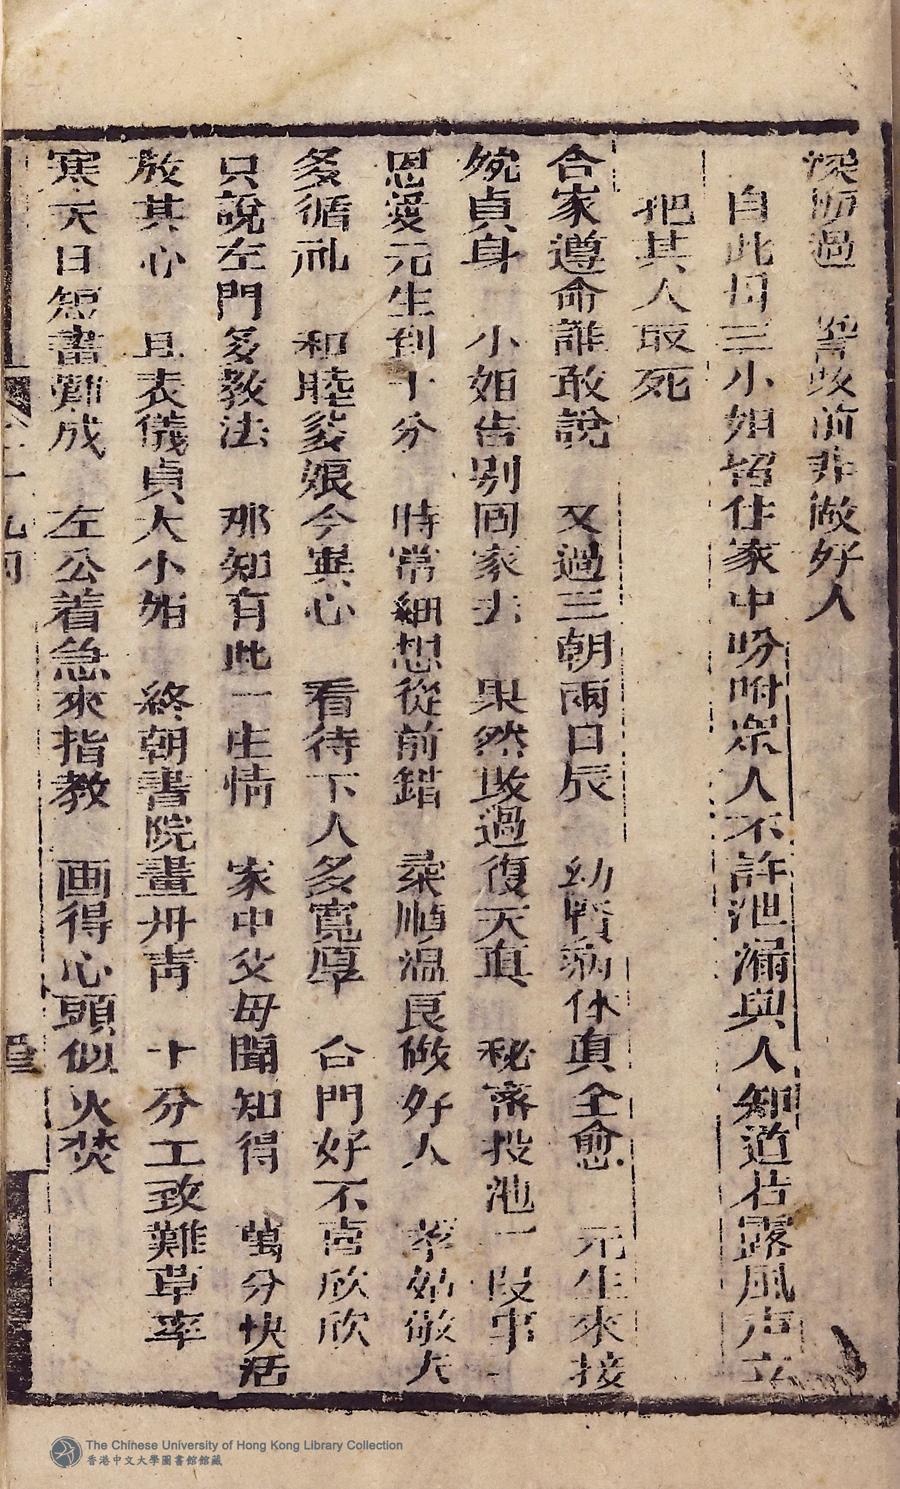 深 過 改前非做好人
自此母三小姐留住家中吩咐眾人不許泄漏與人知道若露風声立
把其人取死
合家遵命誰敢說 又過三朝兩日辰 幼賢病休真全愈 元生來接
婉貞身 小姐告别囬家去 果然改過復天真 秘密投池一叚事
恩愛元生到十分 時常細想從前錯 柔順温良做好人 孝姑敬大
多循礼 和睦爹娘今異心 看待下人多寬厚 合門好不喜欣欣
只說左門多教法 那知有此一生情 家中父母聞知得 萬分快活
放其心 且表儀貞大小姐 終朝書院畫丹青 十分工致難草率
寒天日短畫難成 左公着急來指教 画得心頭似火焚
The Chinese University of Hong Kong Library Collection
香港中文大學圖書館館藏